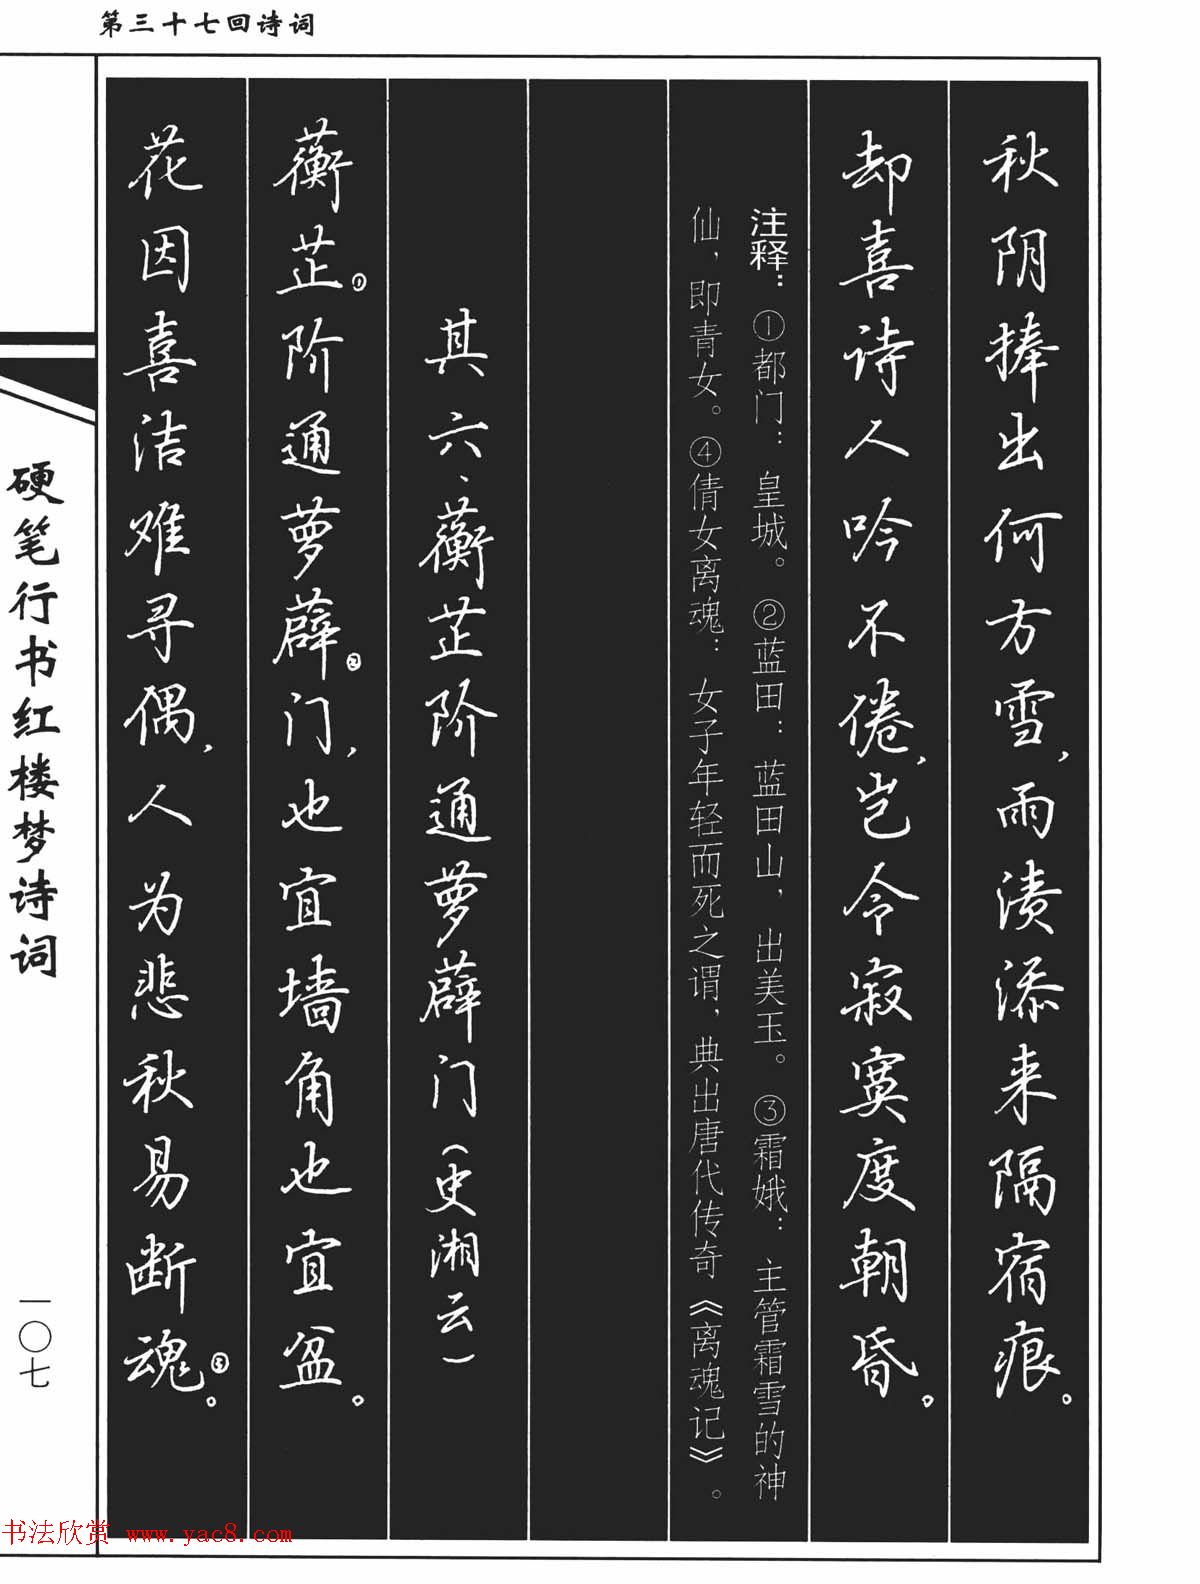 第三十七回诗词
秋阴捧出何方雪，雨渍添来隔宿痕。
却喜诗人吟不倦，岂令寂寞度朝昏。
注释：①都门：皇城。②蓝田：蓝田山，出美玉。③霜娥：主管霜雪的神
仙，即青女。④倩女离魂：女子年轻而死之谓，典出唐代传奇《离魂记》。
其六、蘅芷阶通萝薜门（史湘云）
蘅芷①阶通萝薜②门，也宜墙角也宜盆。
花因喜洁难寻偶，人为悲秋易断魂③。
硬笔行书红楼梦诗词
一〇七
书法欣赏 www.yac8.com